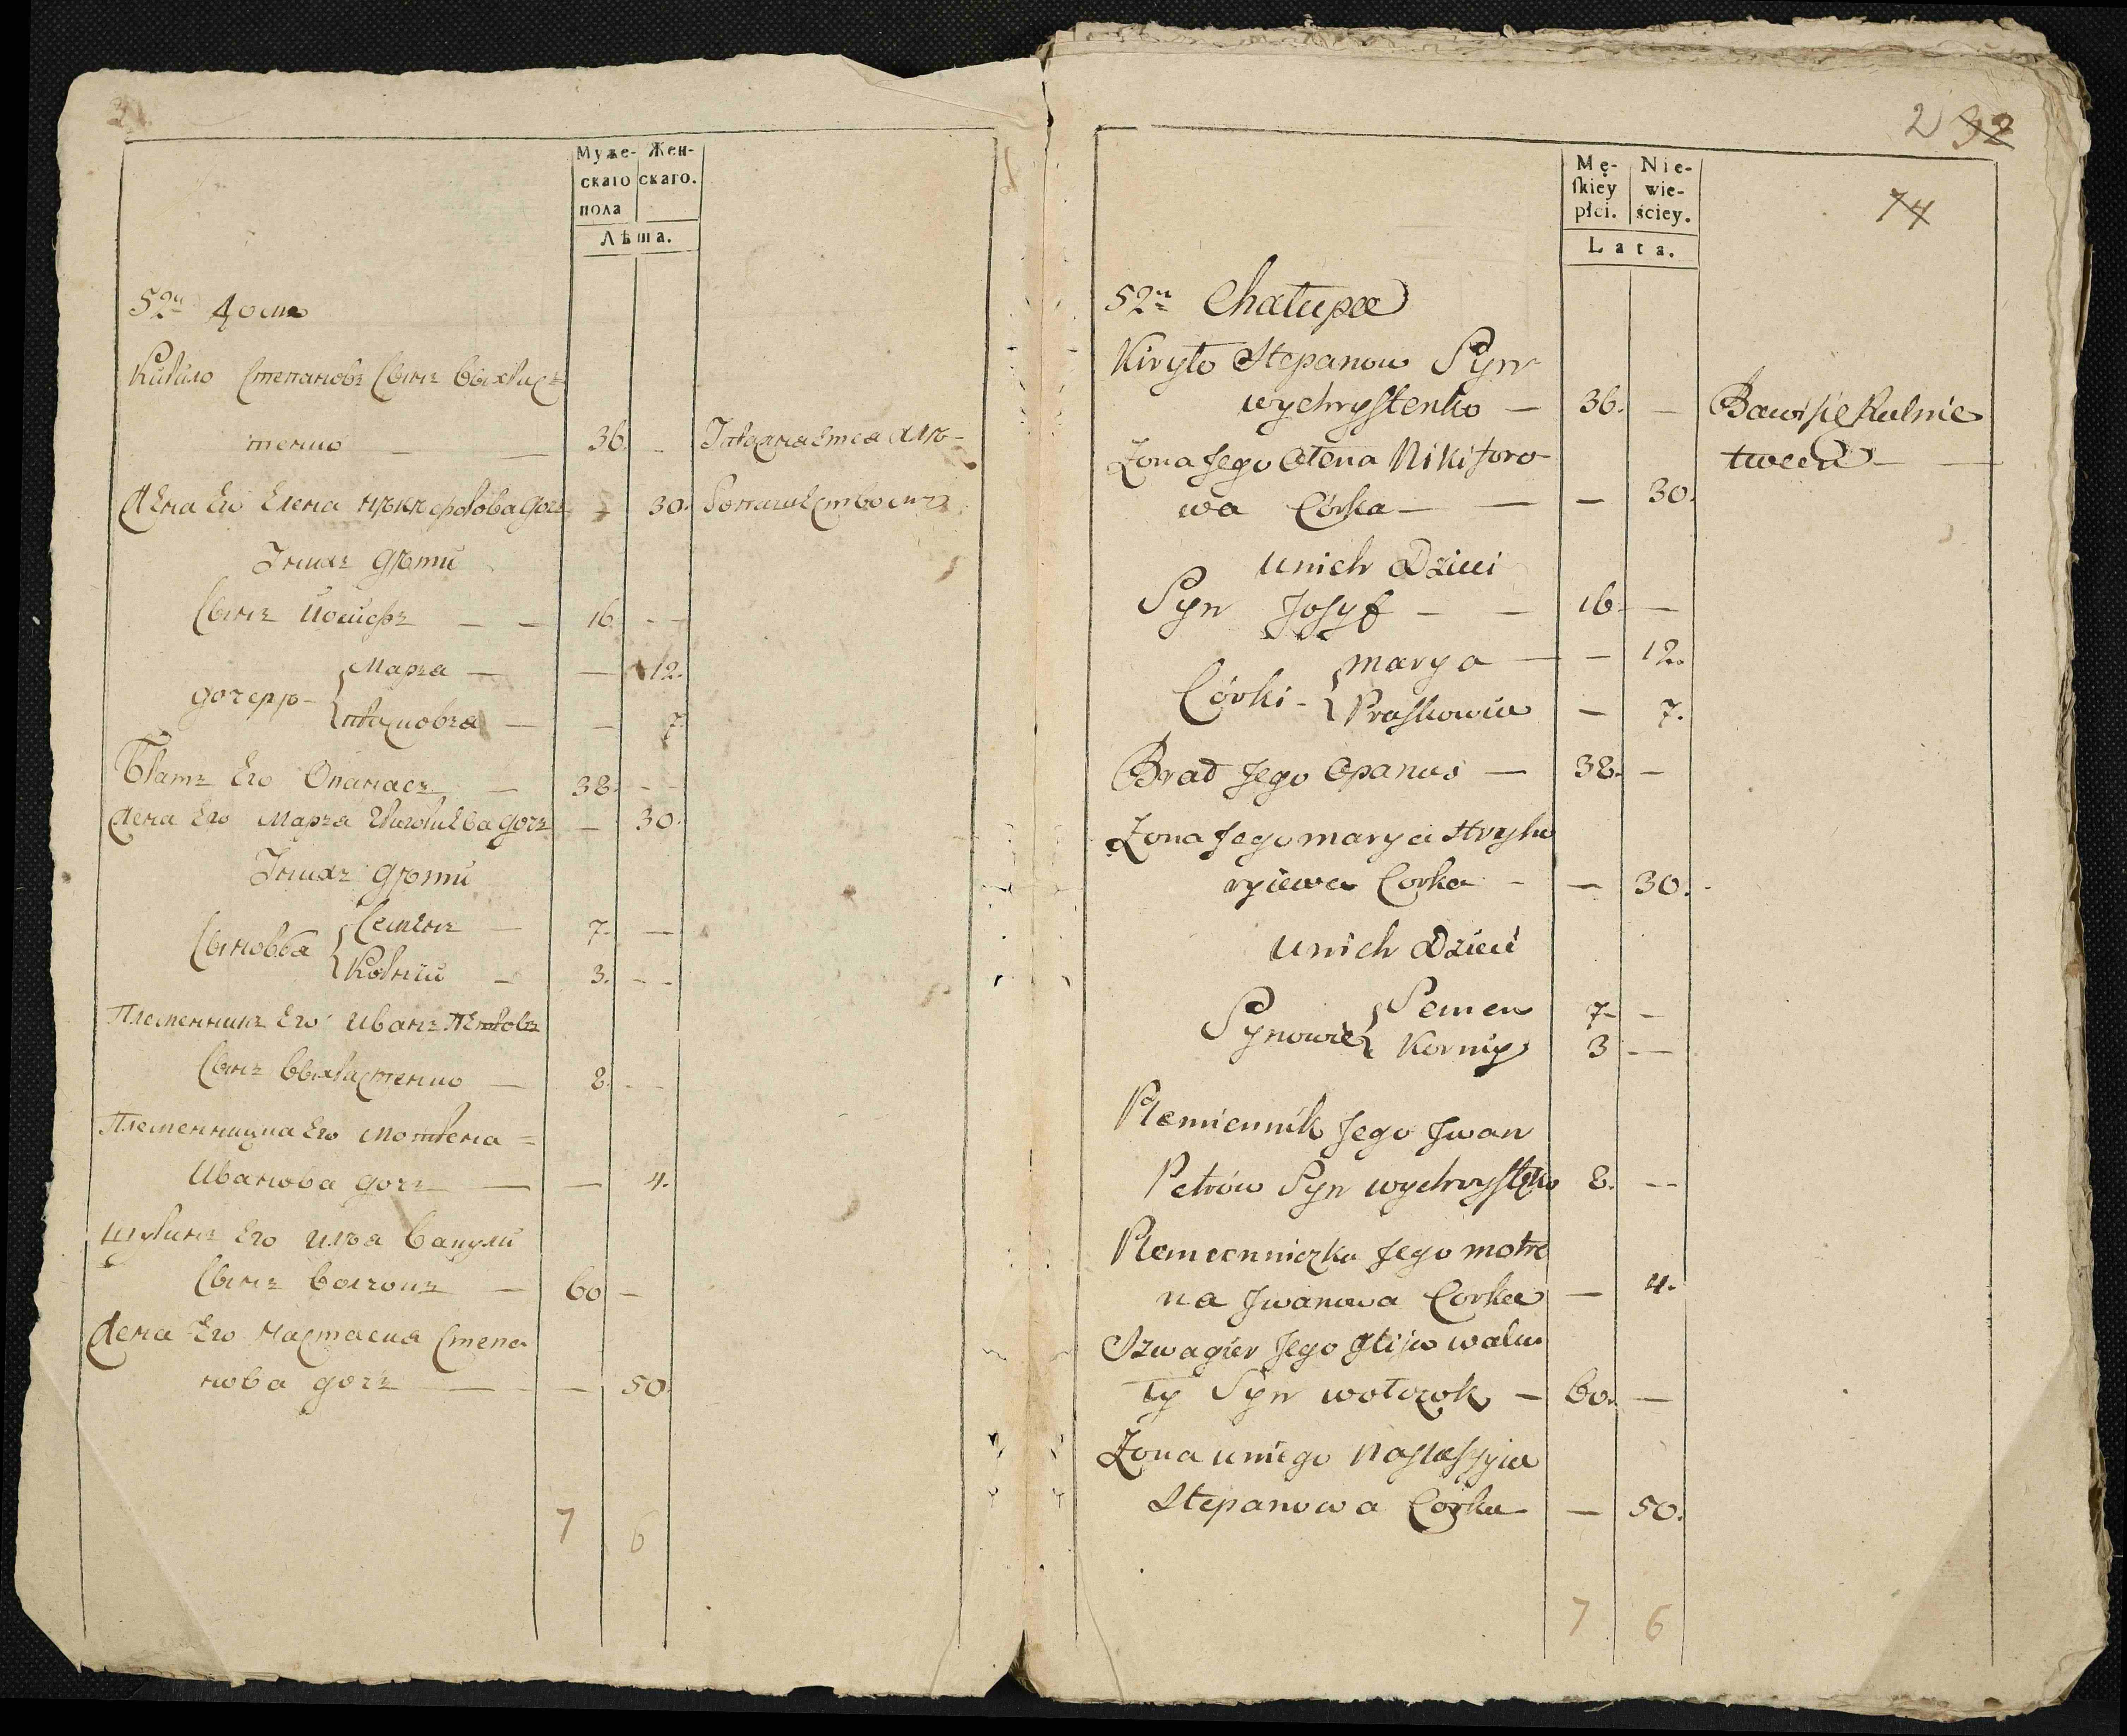 Муже- Жен-
скаго скаго.
пола
Лѣта.
52й домъ
Кирило Степановъ Сынъ Выхрис-
тенко — — 36. -
Жена Его Елена Никифорова дочь - 30.
У нихъ дѣти
Сынъ Иосифъ — — 16. - -
Дочери { Марья — — 12.
Прасковья — — 7
Братъ Его Опанасъ — 38. - -
Жена Его Марья Григориева дочь — 30.
У нихъ дѣти
Сыновья { Семенъ — 7. —
Корнiй — 3. - -
Племенникъ Его Иванъ Петровъ
Сынъ Выхристенко — 8. - -
Племенница Его Мотрена =
Иванова дочь — — 4.
Шуринъ Его Илья Вакули
Сынъ Волчокъ — 60 —
Жена Его Настасия Степа-
нова дочь — — 50.
7 6
2 32
74
Mę- Nie-
skiey wie-
płci. ściey.
Lata.
52ª Chałupa
Kiryło Stepanow Syn
wychrystenko — 36. — Bawi się Rolnic
twem — —
Żona Jego Ołena Nikiforo
wa Córka — — — 30.
u nich Dzieci
Syn Josyf — — 16. —
Córki - { Marya — — 12.
Praskowia — 7.
Brad Jego Opanas — 38. —
Żona Jego Marya Hryho
ryiewa Corka - — 30.
u nich Dzieci
Synowie { Semen 7- —
Korniy 3 - —
Plemiennik Jego Jwan
Petrów Syn wychrystęko 8. - -
Plemienniczka Jego Motre
na Jwanowa Corka — 4.
Szwagier Jego Jlija Waku
ły Syn wołczok — 60. —
Żona u niego Nastasyia
Stepanowa Corka — 50.
7 6